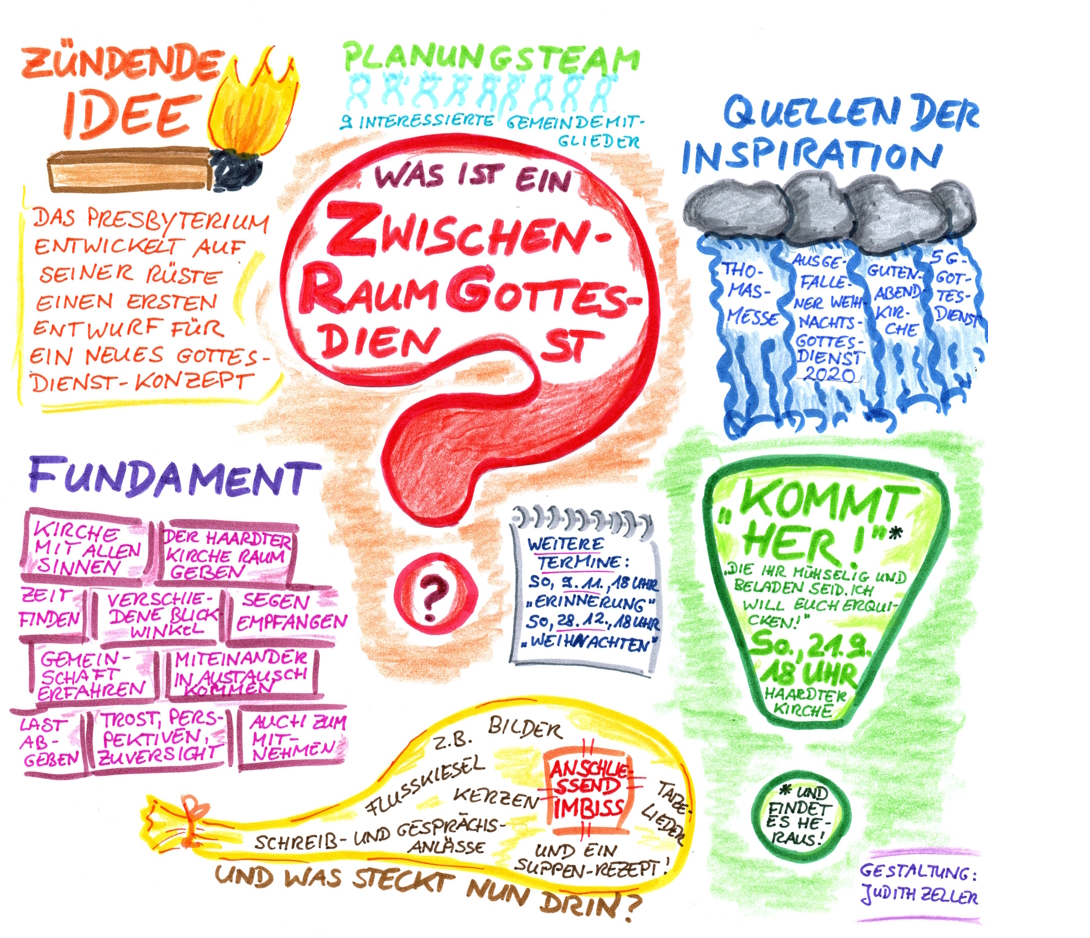 ZÜNDENDE
IDEE
DAS PRESBYTERIUM
ENTWICKELT AUF
SEINER RÜSTE
EINEN ERSTEN
ENTWURF FÜR
EIN NEUES GOTTES-
DIENST-KONZEPT
PLANUNGSTEAM
9 INTERESSIERTE GEMEINDEMIT-
GLIEDER
WAS IST EIN
ZWISCHEN-
RAUMGOTTES-
DIEN ST
?
QUELLEN DER
INSPIRATION
THO-
MAS-
MESSE
AUSGE-
FALLE-
NER WEIH-
NACHTS-
GOTTES-
DIENST
2020
GUTEN-
ABEND-
KIR-
CHE
5G-
GOT-
TES-
DIENST
FUNDAMENT
KIRCHE
MIT ALLEN
SINNEN
DER HAARDTER
KIRCHE RAUM
GEBEN
ZEIT
FINDEN
VERSCHIE-
DENE BLICK
WINKEL
SEGEN
EMPFANGEN
GEMEIN-
SCHAFT
ERFAHREN
MITEINANDER
IN AUSTAUSCH
KOMMEN
LAST
AB-
GEBEN
TROST, PERS-
PEKTIVEN,
ZUVERSICHT
AUCH ZUM
MIT-
NEHMEN
WEITERE
TERMINE:
SO, 9.11., 18 UHR
"ERINNERUNG"
SO, 28.12., 18 UHR
"WEIHNACHTEN"
"KOMMT
HER!"*
"DIE IHR MÜHSELIG UND
BELADEN SEID. ICH
WILL EUCH ERQUI-
CKEN!"
So., 21.9.
18 UHR
HAARDTER
KIRCHE
* UND
FINDET
ES HE-
RAUS!
Z.B. BILDER
FLUSSKIESEL
KERZEN
ANSCHLIE-
SSEND
IMBISS
TAIZE-
LIEDER
SCHREIB- UND GESPRÄCHS-
ANLÄSSE
UND EIN
SUPPEN-REZEPT!
UND WAS STECKT NUN DRIN?
GESTALTUNG:
JUDITH ZELLER